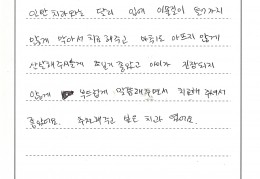 일반 치과와는 달리 입에 이물질이 들어가지
않게 막아서 치료해주고 마취도 아프지 않게
신경써주시는게 좋았고 아이가 긴장되지
않게 부드럽게 말씀해주면서 치료해 주셔서
좋았어요. 추천해주고 싶은 치과 였어요.